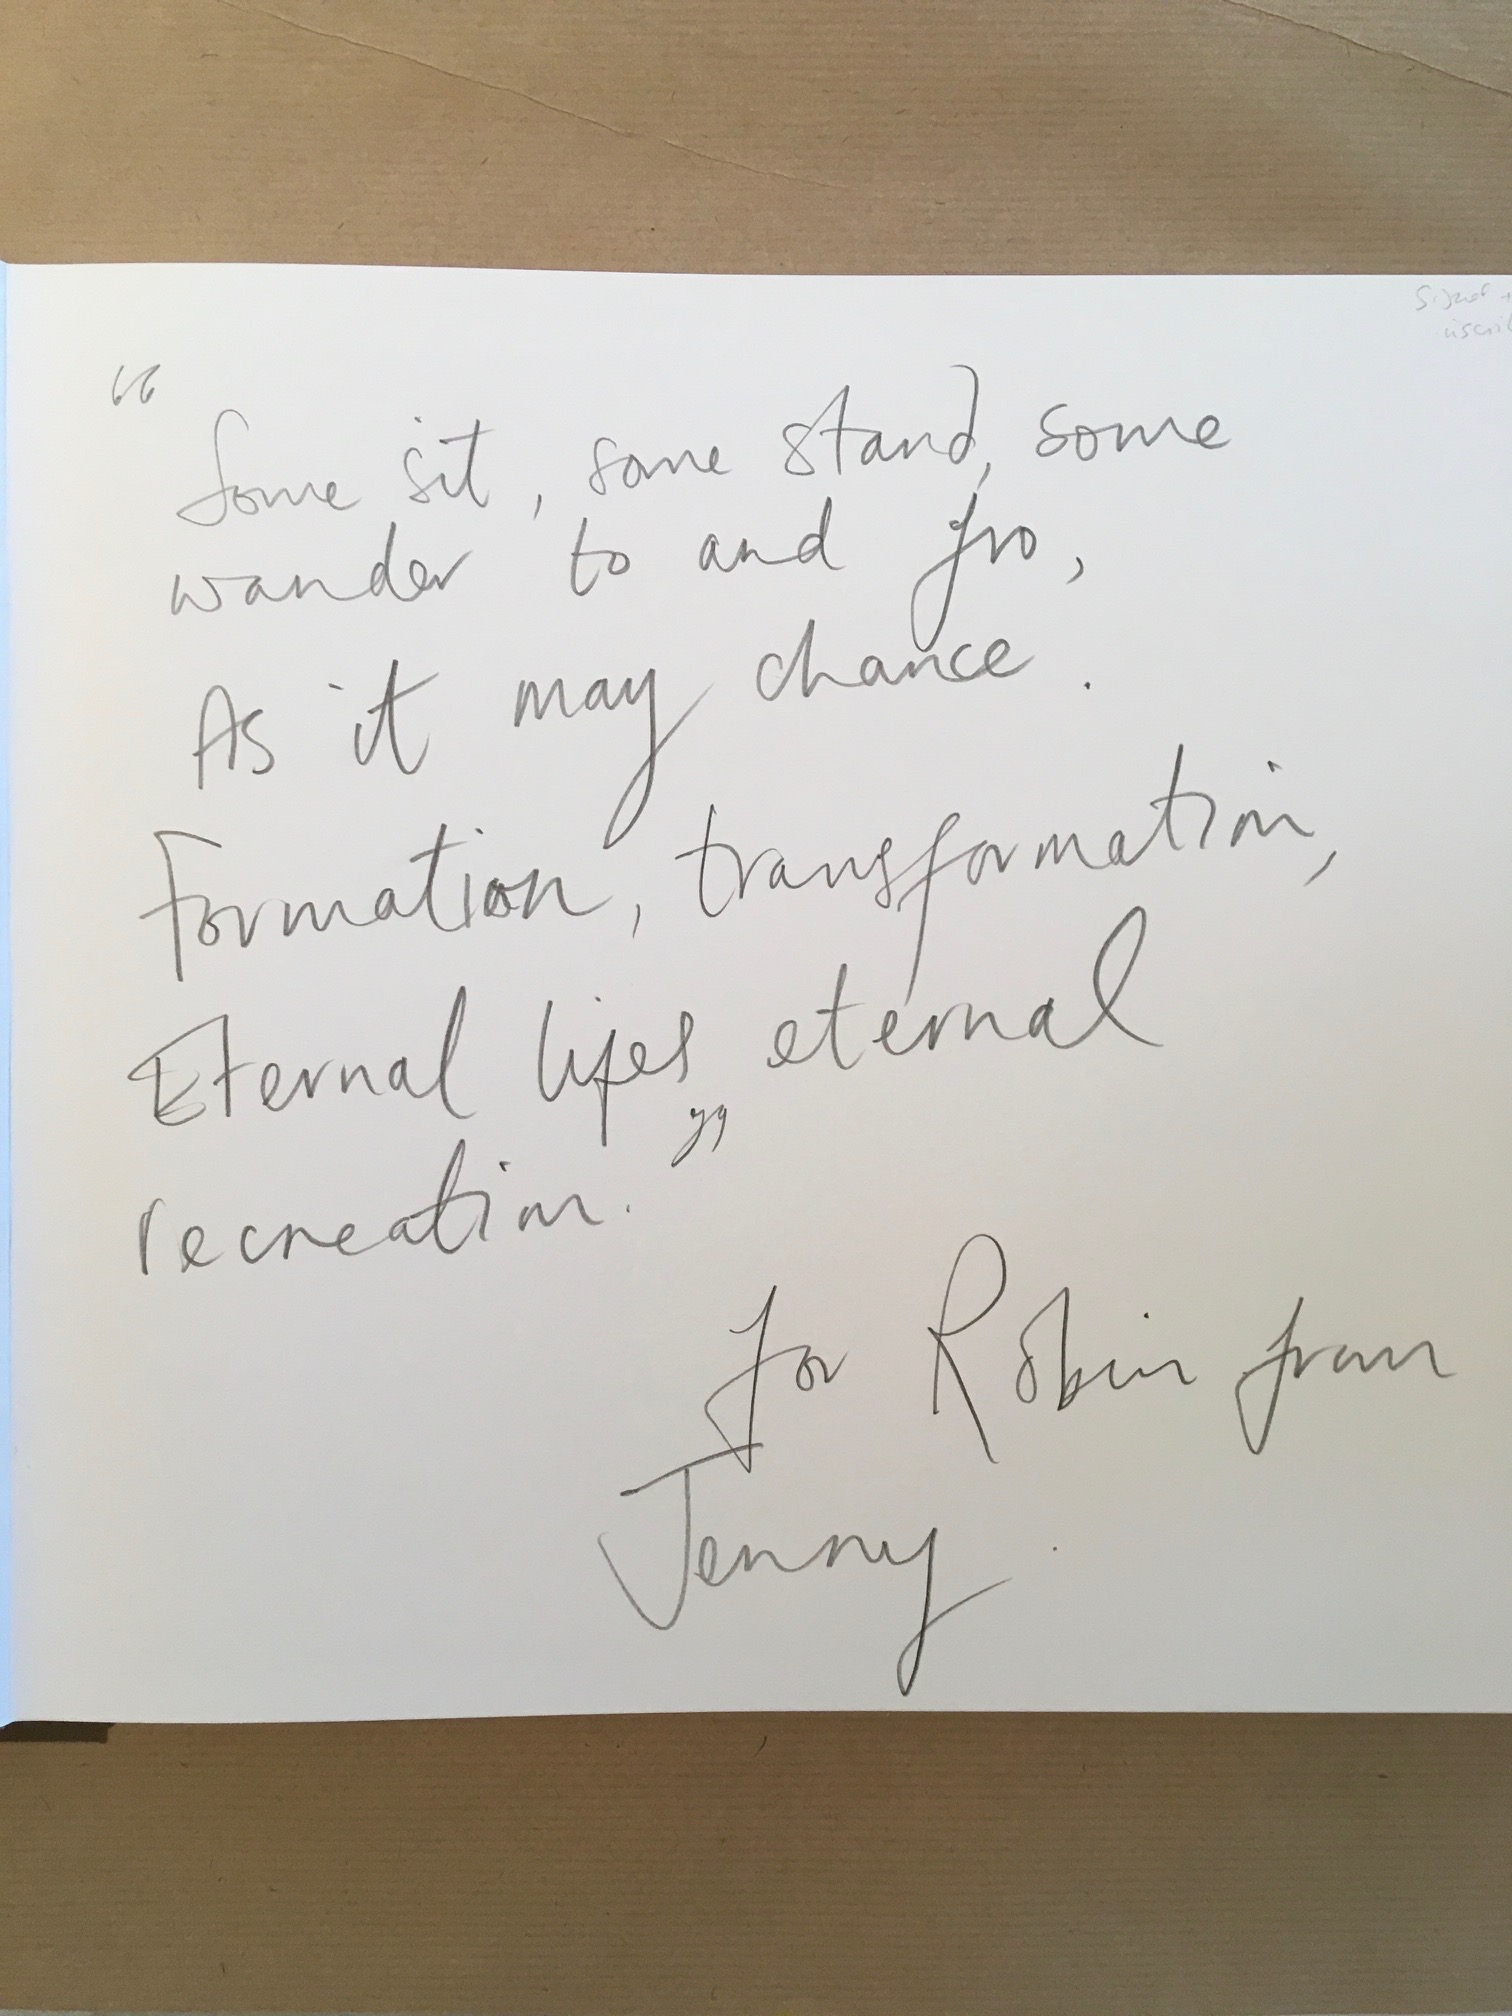 Signed +
"
Some sit, some stand, some
wander to and fro,
As it may chance.
Formation, transformation,
Eternal lifes eternal
recreation."
for Robin from
Jenny.